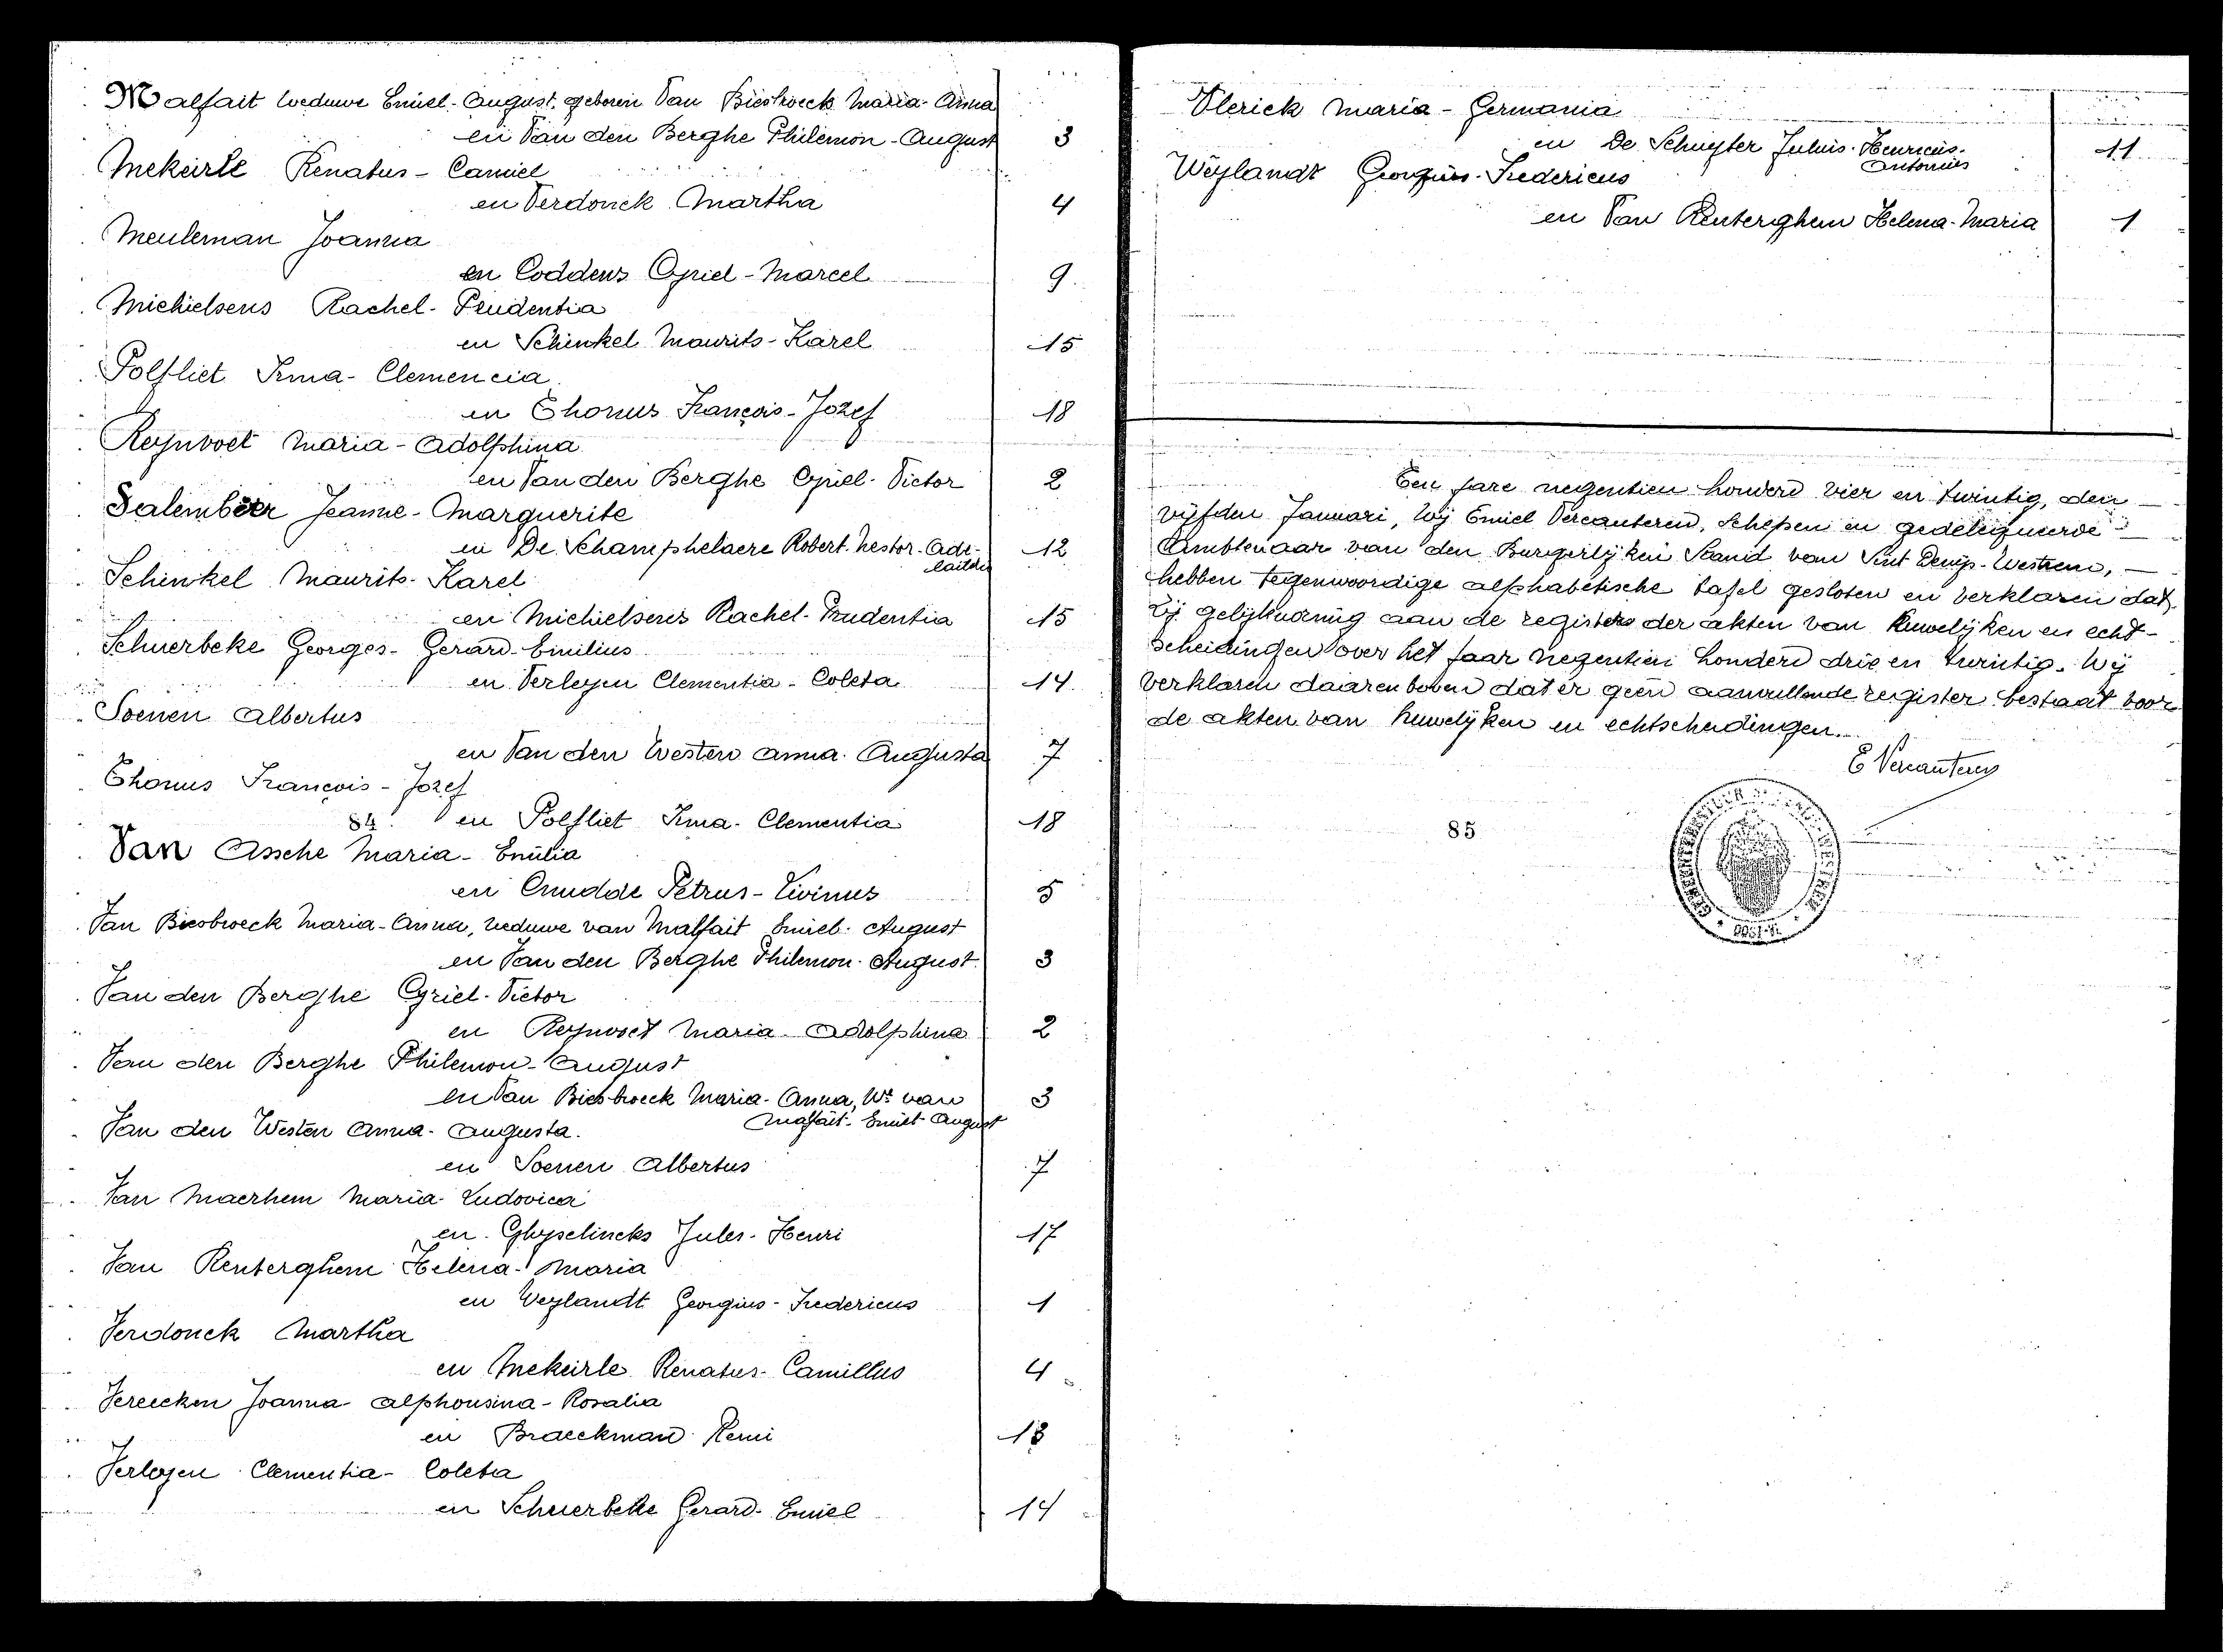 Malfait weduwe Emiel-August, geboren Van Biesbroeck Maria-Anna
en Van den Berghe Philemon-August 3
Mekeirle Renatus-Camiel
en Verdonck Martha 4
Meuleman Joanna
en Coddens Cyriel-Marcel 9
Michielsens Rachel-Prudentia
en Schinkel Maurits-Karel 15
Polfliet Irma-Clemencia
en Thonus François-Jozef 18
Reynvoet Maria-Adolphina
en Van den Berghe Cyriel-Victor 2
Salembier Jeanne-Marguerite
en De Schamphelaere Robert-Nestor-Ade- 12
laide
Schinkel Maurits-Karel
en Michielsens Rachel-Prudentia 15
Schuerbeke Georges-Gerard-Emilius
en Verleyen Clementia-Coleta 14
Soenen Albertus
en Van den Westen Anna-Augusta 7
Thonus François-Jozef
84. en Polfliet Irma-Clementia 18
Van Assche Maria-Emilia
en Cnudde Petrus-Livinus 5
Van Biesbroeck Maria-Anna, weduwe van Malfait Emiel-August
en Van den Berghe Philemon-August 3
Van den Berghe Cyriel-Victor
en Reynvoet Maria-Adolphina 2
Van den Berghe Philemon-August
en Van Biesbroeck Maria-Anna, We van 3
Malfait-Emiel-August
Van den Westen Anna-Augusta.
en Soenen Albertus 7
Van Maerhem Maria-Ludovica
en Ghyselincks Jules-Henri 17
Van Renterghem Helena-Maria
en Weylandt Georgius-Fredericus 1
Verdonck Martha
en Mekeirle Renatus-Camillus 4
Vereecken Joanna-Alphonsina-Rosalia
en Braeckman Remi 13
Verleyen Clementia-Coleta
en Schuerbeke Gerard-Emiel 14
Vlerick Maria-Germania
en De Schuyter Julius-Henricus- 11
Antonius
Weylandt Georgius-Fredericus
en Van Renterghem Helena-Maria 1
Ten jare negentien honderd vier en twintig, den
vijfden Januari, Wij Emiel Vercauteren, Schepen en gedelegueerde
Ambtenaar van den Burgerlijken Stand van Sint Denijs-Westrem,
hebben tegenwoordige alphabetische tafel gesloten en verklaren dat
zij gelijkvormig aan de registers der akten van huwelijken en echt-
scheidingen over het jaar negentien honderd drie en twintig. Wij
verklaren daarenboven dat er geen aanvullende register bestaat voor
de akten van huwelijken en echtscheidingen.
E Vercauteren
85